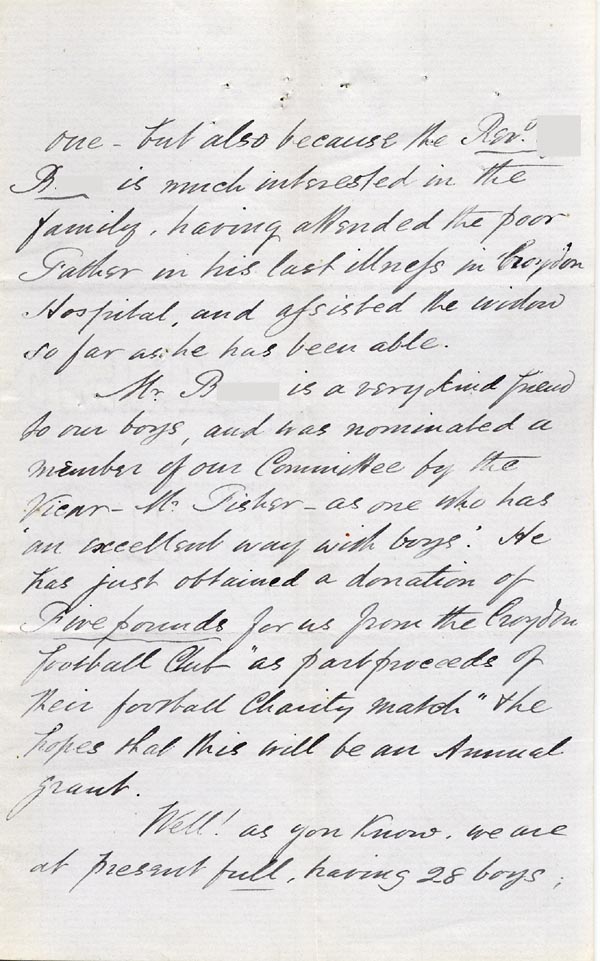 one - but also because the Revd.
B is much interested in the
family, having attended the poor
Father in his last illness in Croydon
Hospital, and assisted the widow
so far as he has been able.
Mr. B is a very kind friend
to our boys, and was nominated a
member of our Committee by the
Vicar - Mr Fisher - as one who has
"an excellent way with boys". He
has just obtained a donation of
Five pounds for us from the Croydon
Football Club "as part proceeds of
their football Charity match" & he
hopes that this will be an Annual
grant.
Well! as you know, we are
at present full, having 28 boys;